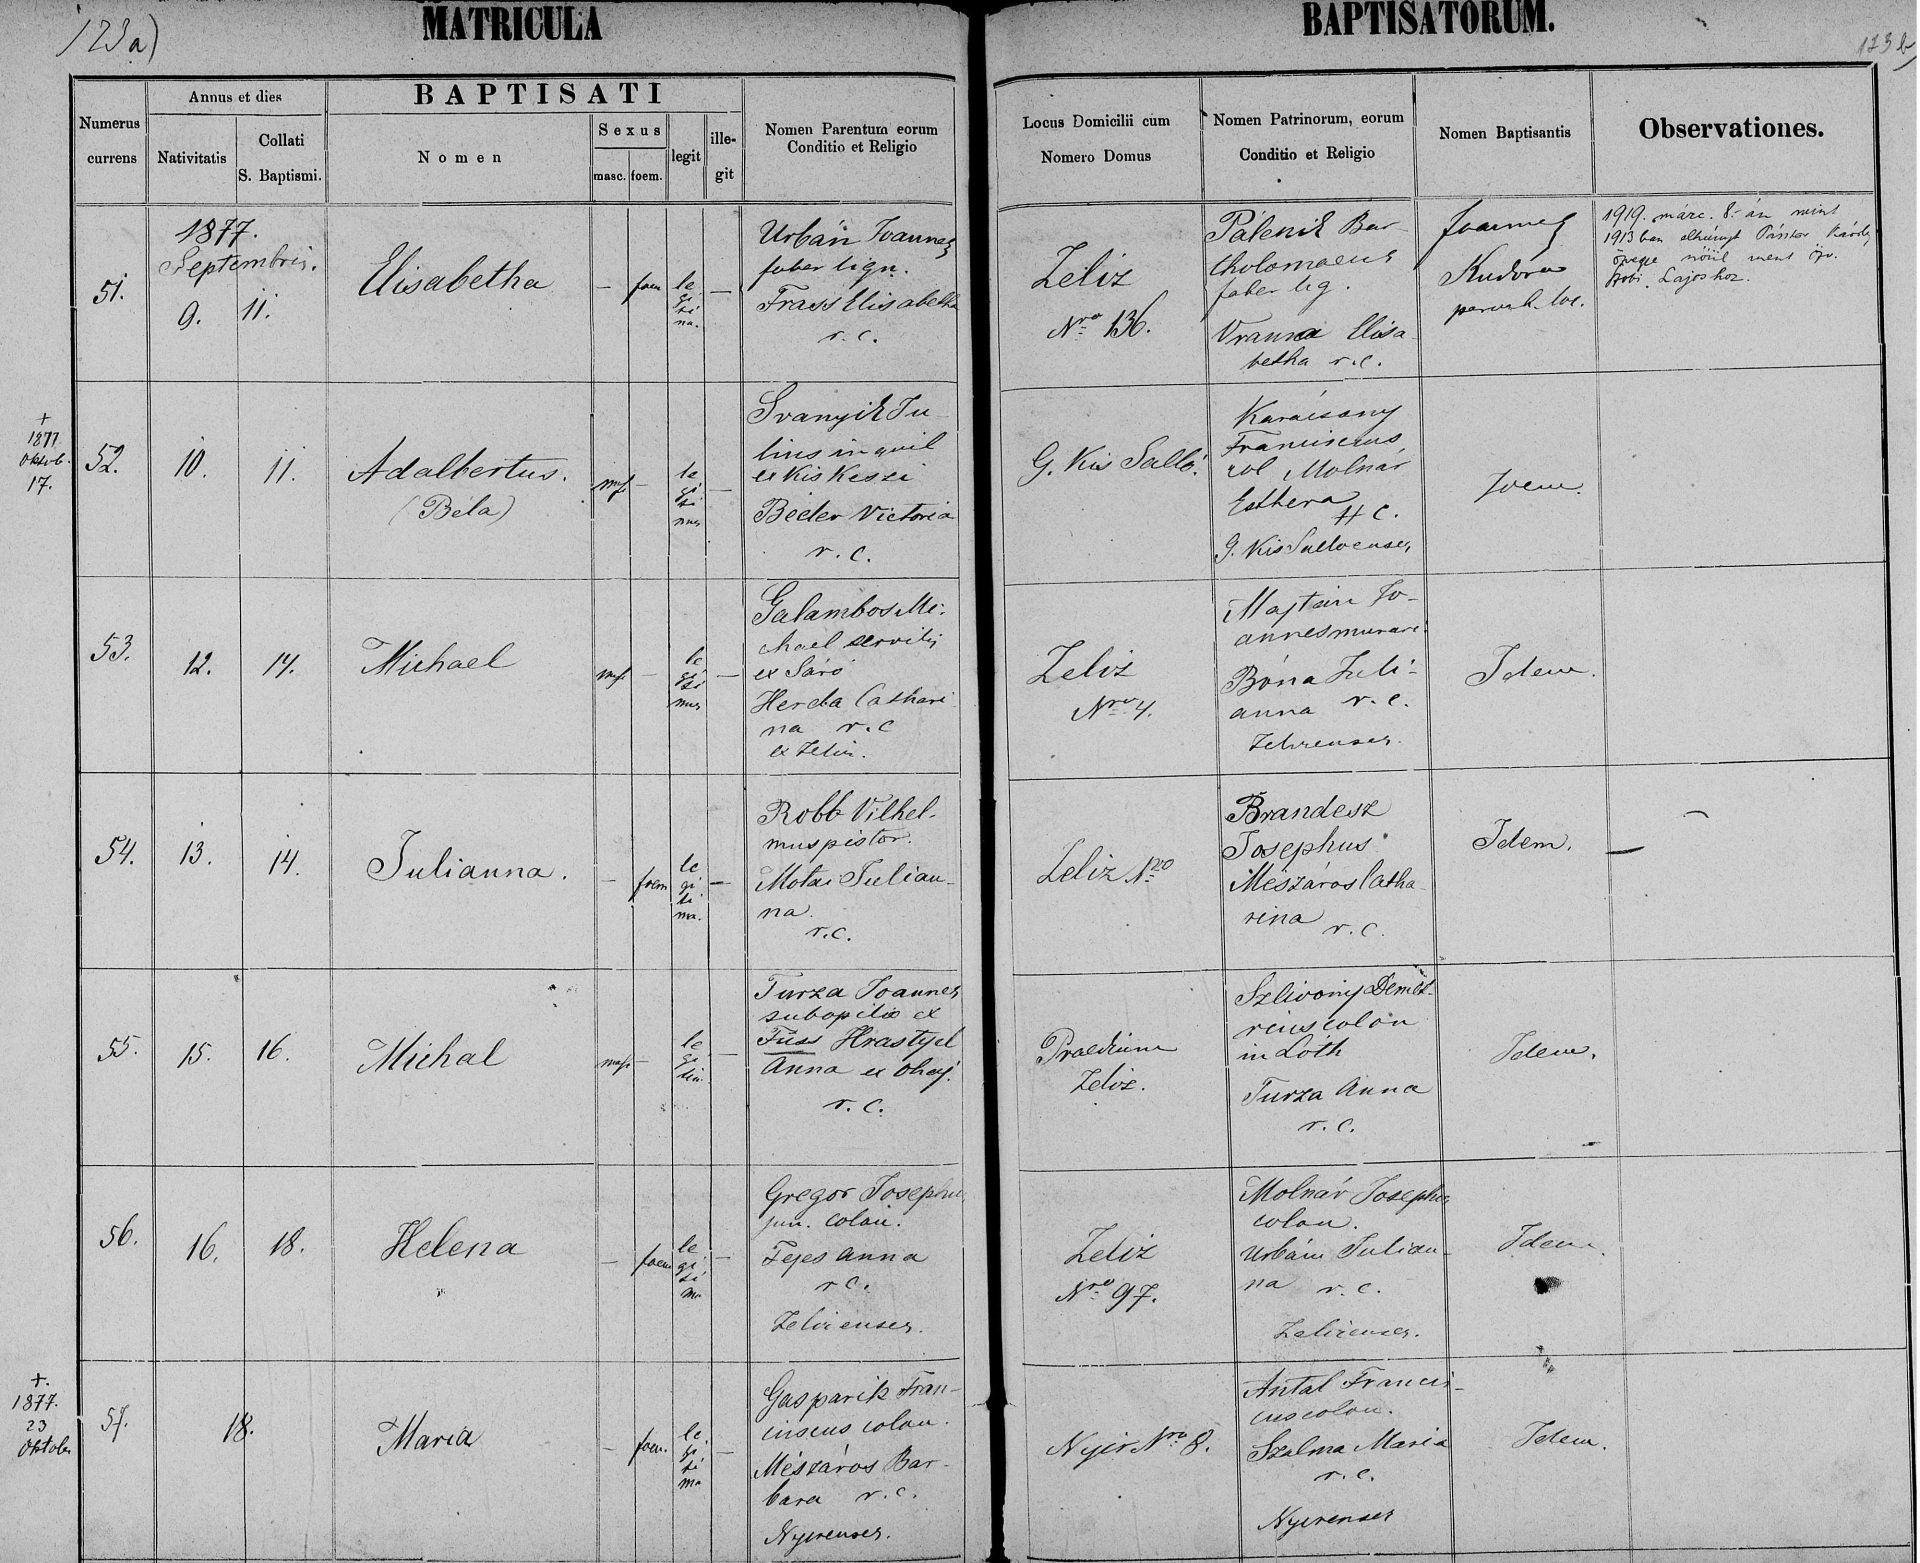 123a)
MATRICULA
BAPTISATORUM.
123b)
Numerus
currens
Annus et dies
Nativitatis
Collati
S. Baptismi.
BAPTISATI
Nomen
Sexus
masc.
foem.
legit
ille-
git
Nomen Parentum eorum
Conditio et Religio
Locus Domicilii cum
Nomero Domus
Nomen Patrinorum, eorum
Conditio et Religio
Nomen Baptisantis
Observationes.
51.
1877.
Septembris.
9.
11.
Elisabetha
—
foem
le
gi
ti
ma.
—
Urbán Joannes
faber lign.
Elisabetha
r. c.
Zeliz
Nro 136.
Pálenik Bar-
tholomaeus
faber lig.
Vranka Elisa-
betha r.c.
Joannes
Kudora
paroch. loc.
1919. márc. 8.-án mint
1913 ban elhúnyt Pásztor Károly
özvegye nőül ment özv.
Lajoshoz.
+
1877
Oktob.
17.
52.
10.
11.
Adalbertus.
(Béla)
—
le
gi
ti
mus
—
Svanyik Ju-
lius inquil
ex Kis Keszi
Béeler Victoria
r. c.
G. Kis Salló.
Karácsony
Franciscus
col Molnár
Esthera
H C.
G. Kis Salloenses
Idem.
53.
12.
14.
Michael
—
le
gi
ti
mus
—
Galambos Mi-
chael servilis
ex Sáró
Herda Cathari
na r.c
ex Zeliz.
Zeliz
Nro 4.
Majtán Jo-
annes murari
Bóna Juli-
anna r. c.
Zelizenses.
Idem.
54.
13.
14.
Julianna.
—
foem
le
gi
ti
ma.
—
Robb Vilhel-
mus pistor.
Motai Julian-
na.
r.c.
Zeliz Nro
Brandesz
Josephus
Mészáros Catha-
rina
r. c.
Idem.
—
55.
15.
16.
Michal
—
le
gi
tim.
—
Turza Joannes
subopilio ex
Füss Hrastyel
Anna ex Ohaj.
r. c.
Praedium
Zeliz.
Szlivony Demet-
rius colon
in Lóth
Turza Anna
r. c.
Idem.
56.
16.
18.
Helena
—
foem
le
gi
ti
ma
—
Gregor Josephus
jun. colon.
Fejes Anna
r c.
Zelizenses.
Zeliz
Nro 97.
Molnár Josephus
colon.
Urbán Julian-
na r. c.
Zelizenses.
Idem.
+.
1877.
23
Oktober
57.
18.
Maria
—
foem.
le.
gi
ti
ma
—
Gasparik Fran-
ciscus colon.
Mészáros Bar-
bara r. c.
Nyirenses.
Nyir Nro 8.
Antal Francis-
cus colon.
Szalma Maria
r. c.
Nyirenses
Idem.